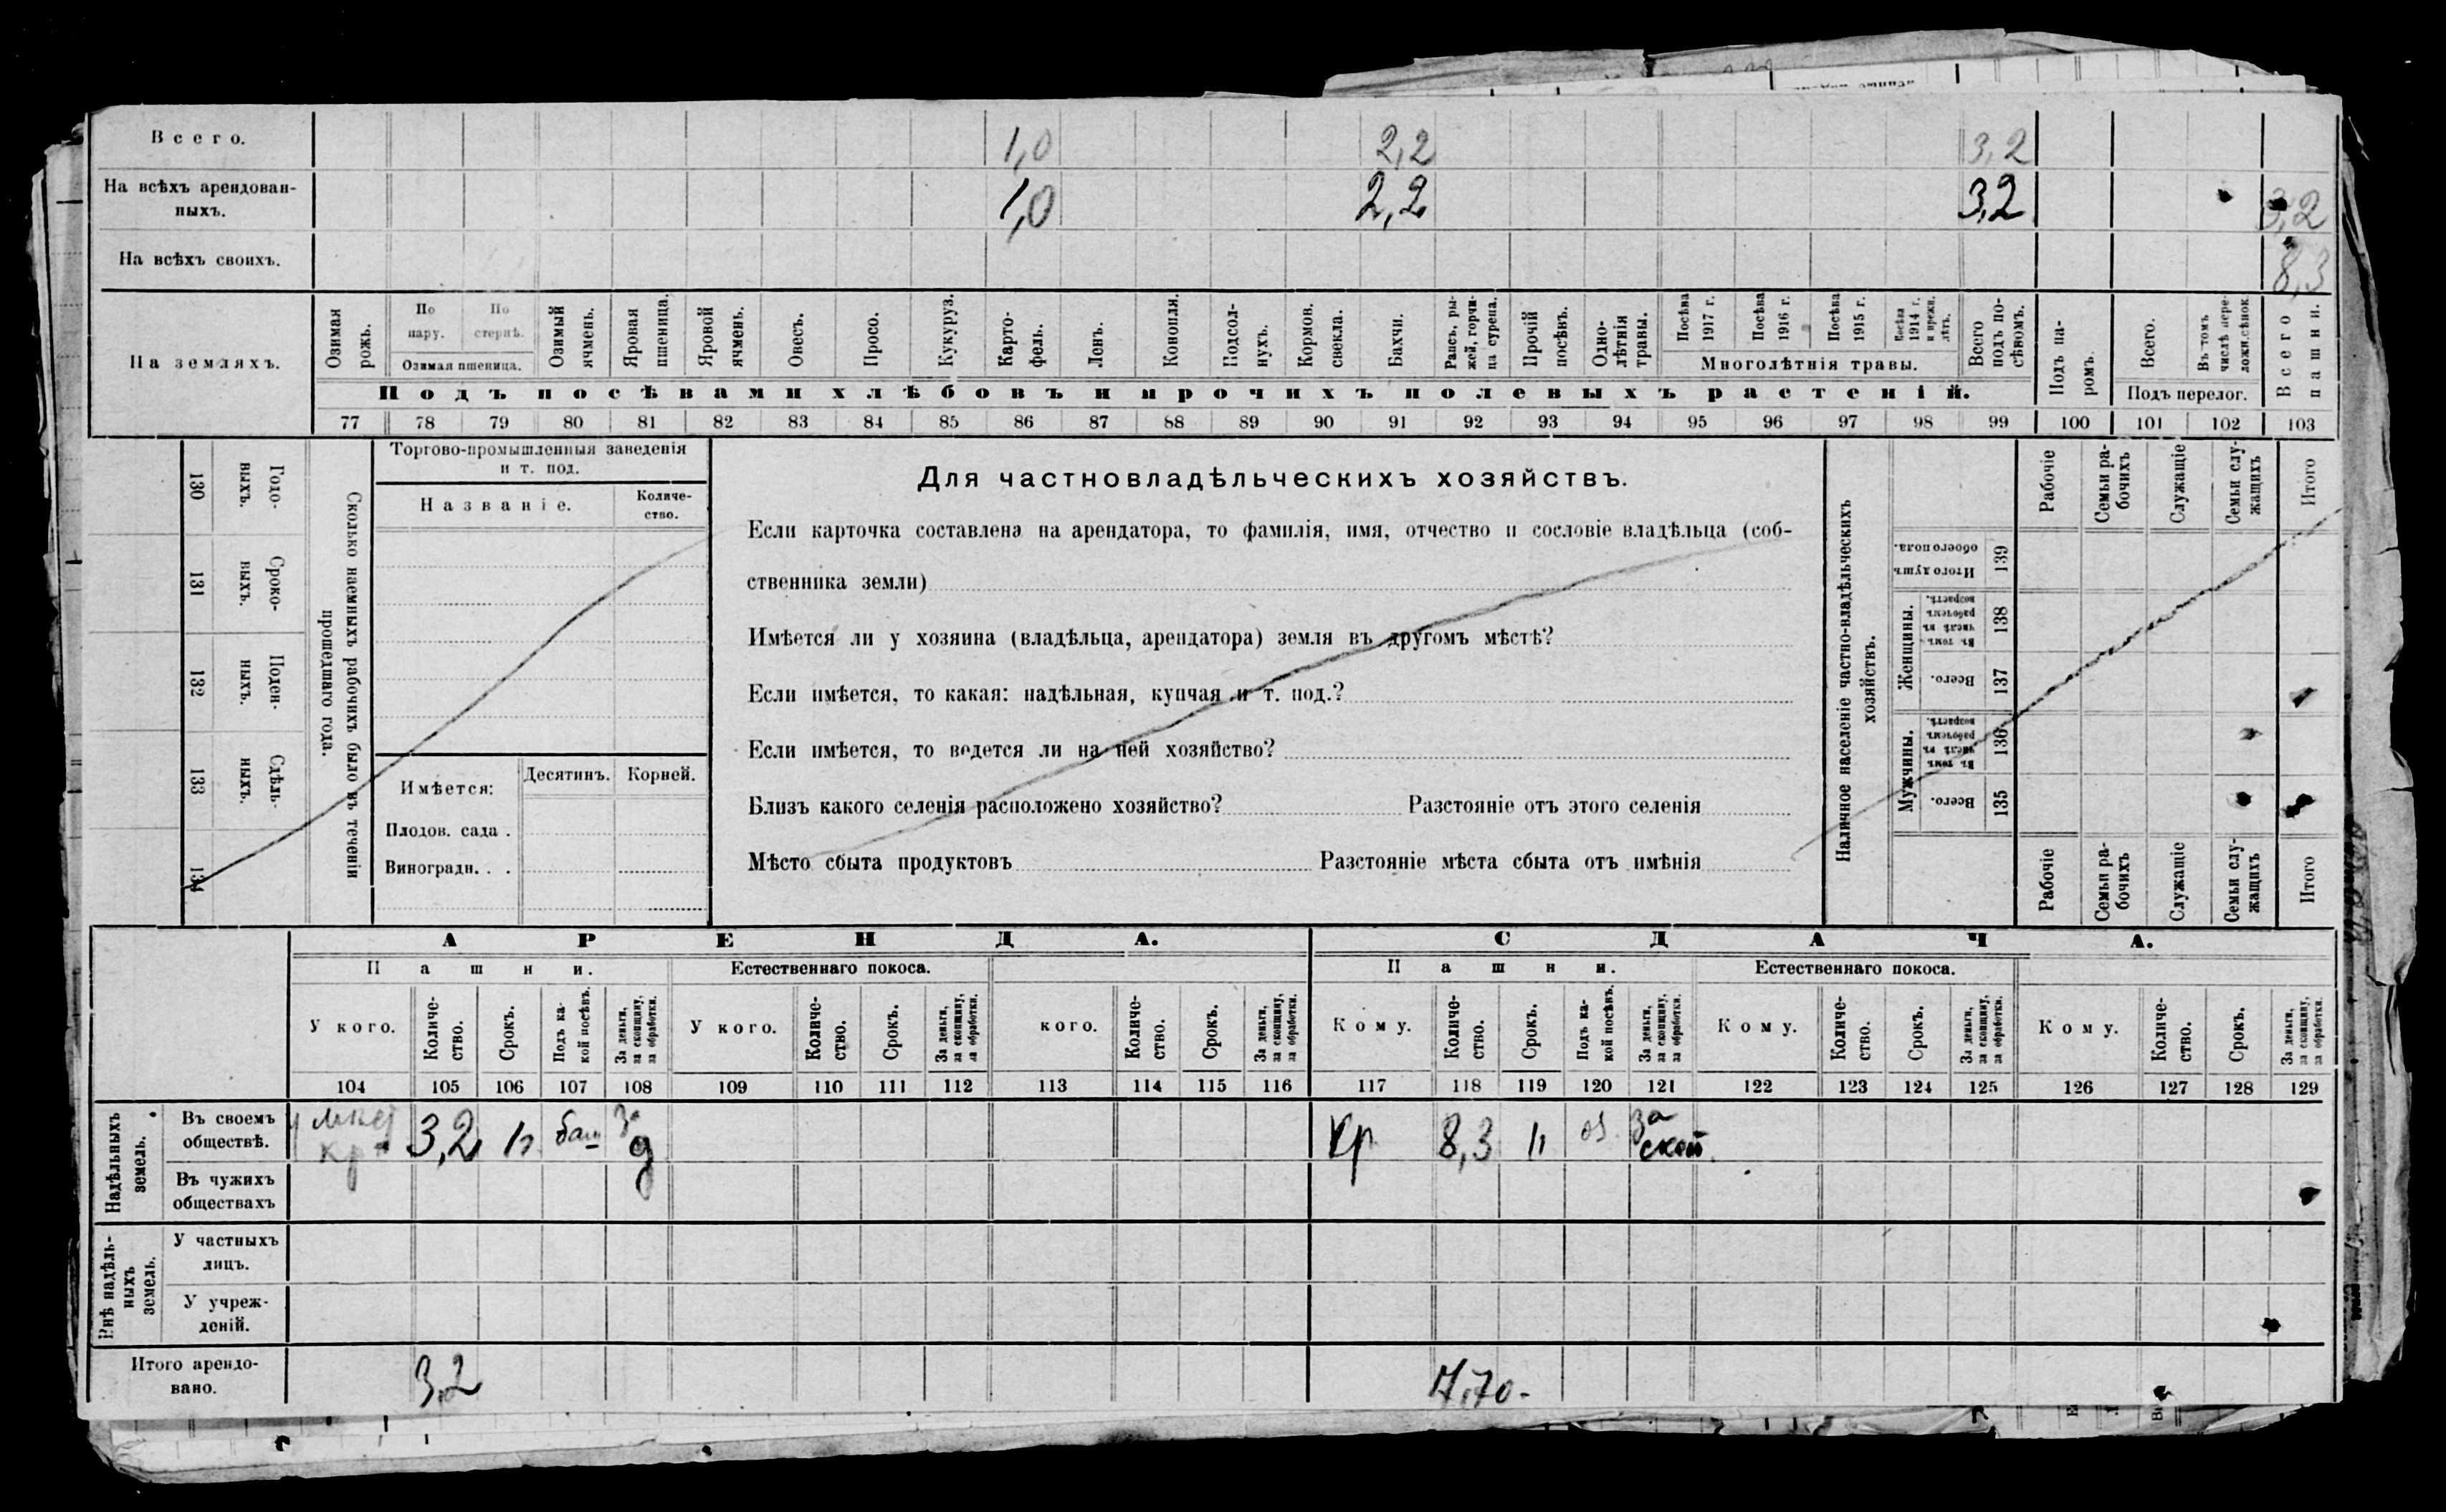 Всего. 1,0 2,2 3,2
На всѣхъ арендован-
ныхъ. 1,0 2,2 3,2 3,2
На всѣхъ своихъ. 8,3
На земляхъ.
Озимая рожь.
По пару.
По стернѣ.
Озимая пшеница.
Озимый ячмень.
Яровая пшеница.
Яровой ячмень.
Овесъ.
Просо.
Кукуруз.
Карто-
фель.
Ленъ.
Конопля.
Подсол-
нухъ.
Кормов.
свекла.
Бахчи.
Рапсъ, ры-
жей, горчи-
ца сурепа.
Прочій
посѣвъ.
Одно-
лѣтнія
травы.
Посѣва
1917 г.
Посѣва
1916 г.
Посѣва
1915 г.
Посѣва
1914 г.
и прежн.
лѣтъ.
Многолѣтнія травы.
Всего
подъ по-
сѣвомъ.
Подъ па-
ромъ.
Всего.
Въ томъ
числѣ пере-
ложн. сѣнок.
Подъ перелог.
Всего
пашни.
Подъ посѣвами хлѣбовъ и прочихъ полевыхъ растеній.
77 78 79 80 81 82 83 84 85 86 87 88 89 90 91 92 93 94 95 96 97 98 99 100 101 102 103
130 Годо-
выхъ.
131 Сроко-
выхъ.
132 Поден-
ныхъ.
133 Сдѣль-
ныхъ.
134
Сколько наемныхъ рабочихъ было въ теченіи
прошедшаго года.
Торгово-промышленныя заведенія
и т. под.
Названіе.
Количе-
ство.
Имѣется:
Десятинъ.
Корней.
Плодов. сада .
Виноградн. . .
Для частновладѣльческихъ хозяйствъ.
Если карточка составлена на арендатора, то фамилія, имя, отчество и сословіе владѣльца (соб-
ственника земли)
Имѣется ли у хозяина (владѣльца, арендатора) земля въ другомъ мѣстѣ?
Если имѣется, то какая: надѣльная, купчая и т. под.?
Если имѣется, то ведется ли на ней хозяйство?
Близъ какого селенія расположено хозяйство? Разстояніе отъ этого селенія
Мѣсто сбыта продуктовъ Разстояніе мѣста сбыта отъ имѣнія
Наличное населеніе частно-владѣльческихъ
хозяйствъ.
Итого душъ
обоего пола.
139
Женщины.
Въ томъ
числѣ въ
рабочемъ
возрастѣ.
138
Всего.
137
Мужчины.
Въ томъ
числѣ въ
рабочемъ
возрастѣ.
136
Всего.
135
Рабочіе
Семьи ра-
бочихъ
Служащіе
Семьи слу-
жащихъ
Итого
Рабочіе
Семьи ра-
бочихъ
Служащіе
Семьи слу-
жащихъ
Итого
АРЕНДА.
СДАЧА.
Пашни.
Естественнаго покоса.
Пашни.
Естественнаго покоса.
У кого.
Количе-
ство.
Срокъ.
Подъ ка-
кой посѣвъ.
За деньги,
за скопщину,
за обработки.
У кого.
Количе-
ство.
Срокъ.
За деньги,
за скопщину,
за обработки.
кого.
Количе-
ство.
Срокъ.
За деньги,
за скопщину,
за обработки.
Кому.
Количе-
ство.
Срокъ.
Подъ ка-
кой посѣвъ.
За деньги,
за скопщину,
за обработки.
Кому.
Количе-
ство.
Срокъ.
За деньги,
за скопщину,
за обработки.
Кому.
Количе-
ство.
Срокъ.
За деньги,
за скопщину,
за обработки.
104 105 106 107 108 109 110 111 112 113 114 115 116 117 118 119 120 121 122 123 124 125 126 127 128 129
Надѣльныхъ
земель.
Въ своемъ
обществѣ.
кр 3,2 баш за
д
Кр 8,3 оз за
скоп
Въ чужихъ
обществахъ
Внѣ надѣль-
ныхъ
земель.
У частныхъ
лицъ.
У учреж-
деній.
Итого арендо-
вано. 3,2 7,70